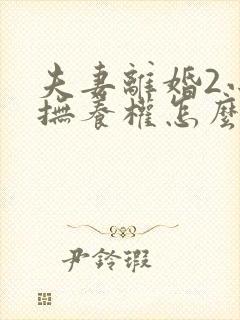 夫妻離婚2
撫養權怎麼
尹鈴瑕